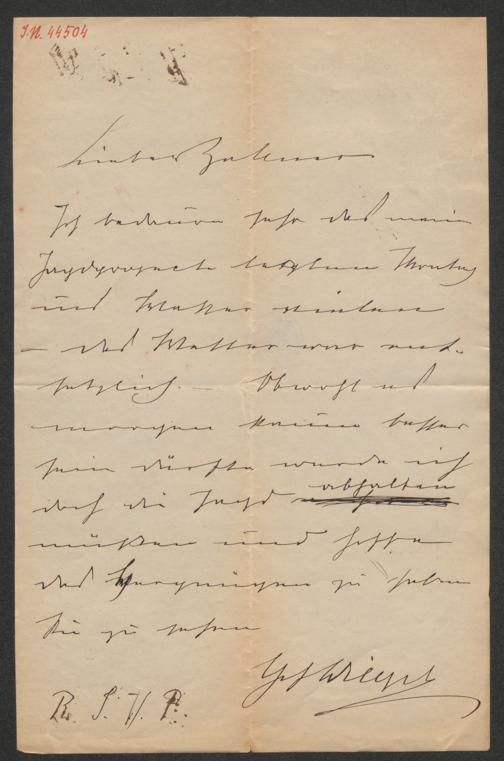 I.N. 44504
Lieber
Ich bedaure sehr daß mein
Jagdprojecte letzten Montag
ins Wasser vielen
— das Wetter war ent-
setzlich. — Obwohl es
morgen kaum besser
sein dürfte werde ich
doch die Jagd abhalten
müßen und hoffe
das Vergnügen zu haben
Sie zu sehen
R. S. V. P.